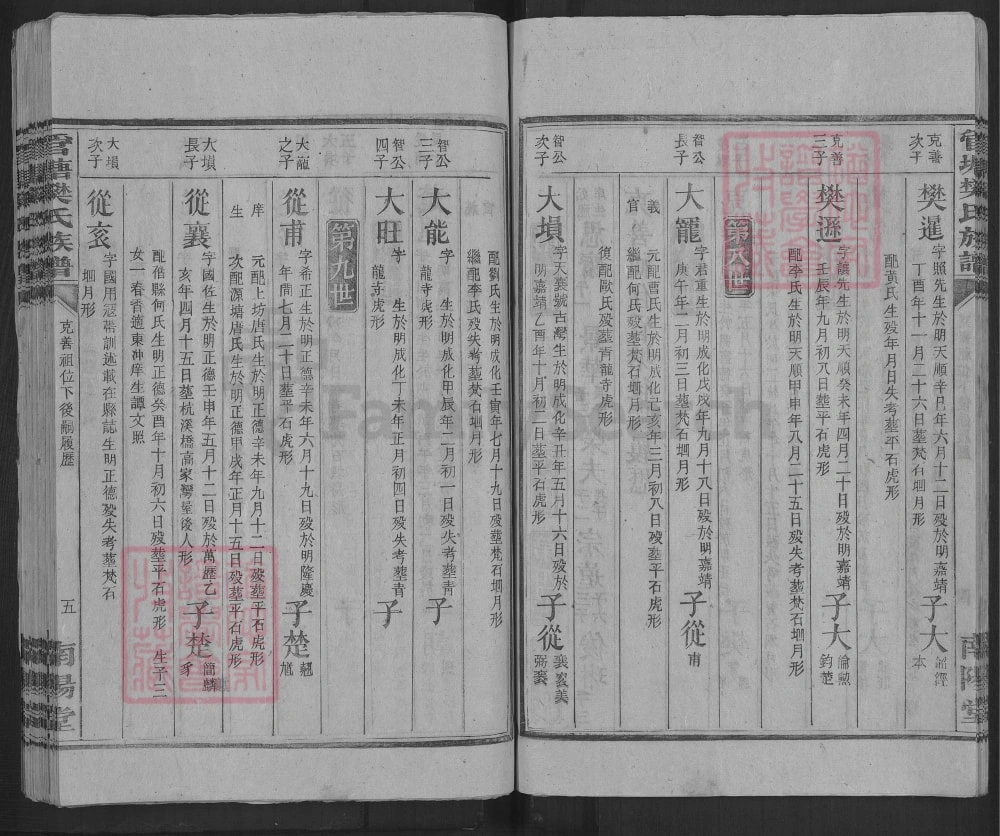 克善
次子
樊暹
字照先生於明天順辛巳年六月十二日殁於明嘉靖
丁酉年十一月二十六日墓梵石堌月形
子大
韶經
本
配黃氏生殁年月日失考墓平石虎形
克善
三子
樊遜
字讓先生於明天順癸未年四月二十日殁於明嘉靖
壬辰年九月初八日墓平石虎形
子大
倫
鈞楚
配李氏生於明天順甲申年八月二十五日殁失考墓梵石堌月形
第八世
智公
長子
大寵
字君重生於明成化戊戌年九月十八日殁於明嘉靖
庚午年二月初三日墓梵石堌月形
子從
甫
元配曹氏生於明成化己亥年三月初八日殁墓平石虎形
繼配何氏殁墓梵石堌月形
復配歐氏殁墓青龍寺虎形
智公
次子
大塤
字天襄號古灣生於明成化辛丑年五月十六日殁於
明嘉靖乙酉年十月初二日墓平石虎形
子從
配劉氏生於明成化壬寅年七月十九日殁墓梵石堌月形
繼配李氏殁失考墓梵石堌月形
智公
三子
大能
字
生於明成化甲辰年二月初一日殁失考墓青
龍寺虎形
子
智公
四子
大旺
字
生於明成化丁未年正月初四日殁失考墓青
龍寺虎形
子
第九世
大寵
之子
從甫
字希正生於明正德辛未年六月十九日殁於明隆慶
年間七月二十日墓平石虎形
子楚
翹
元配上坊唐氏生於明正德辛未年九月十二日殁墓平石虎形
次配源塘唐氏生於明正德甲戌年正月十五日殁墓平石虎形
大塤
長子
從襄
字國佐生於明正德壬申年五月十二日殁於萬歷乙
亥年四月十五日墓杭溪橋高家灣屋後人形
子楚
簡麟
豸
配偕縣何氏生於明正德癸酉年十月初六日殁墓平石虎形
生子三
女一春香適東冲庠生譚文照
大塤
次子
從袞
字國用冠帶訓迪載在縣誌生明正德殁失考墓梵石
堌月形
管塘樊氏族譜
克善祖位下後嗣履歷
五
南陽堂